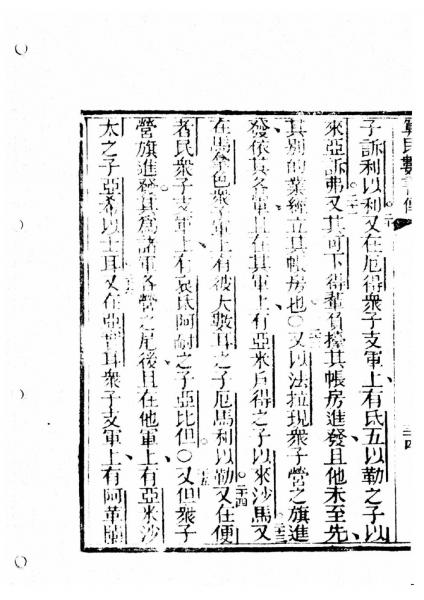 民數書傳
子訴利以利又在厄得衆子支軍上有氏五以勒之子以
來亞訴弗又其可下得輩負擡其帳房進發且他未至先
其別的業經立其帳房也○又以法拉現衆子營之旗進
發依其各軍且在其軍上有亞米戶得之子以來沙馬又
在馬拿色衆子軍上有彼大數耳之子厄馬利以勒又在便
者民衆子支軍上有氏阿耐之子亞比但○又但衆子
營旗進發其為諸軍各營之尾後且在他軍上有亞米沙
太之子亞希以士且又在亞實耳衆子支軍上有阿革蘭